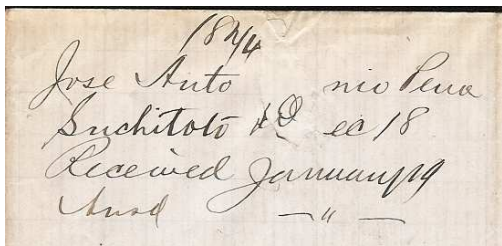 1874
Jose Anto nio Pena
Suchitoto Dec 18
Received January 19
Ansd — " —